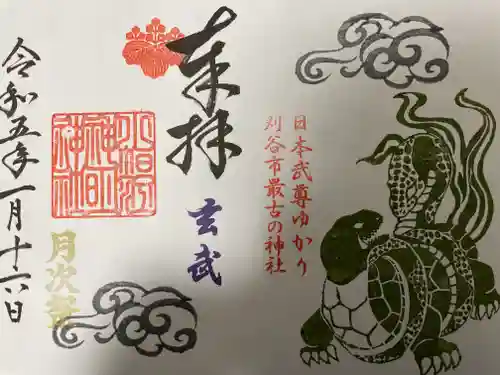 奉拝
玄武
日本武尊ゆかり
刈谷市最古の神社
小垣江
神明
神社
月次祭
令和五年一月十六日